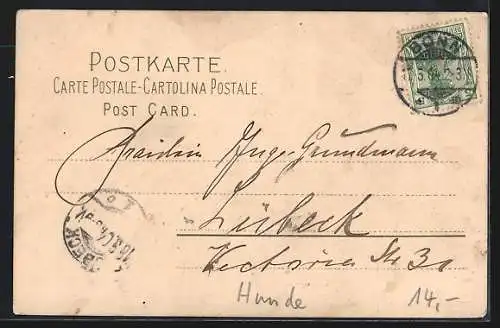 POSTKARTE.
CARTE POSTALE-CARTOLINA POSTALE.
POST CARD.
BONN
Fräulein Inge Grundmann
Lübeck
Victoria Str 30
Hunde 14,-